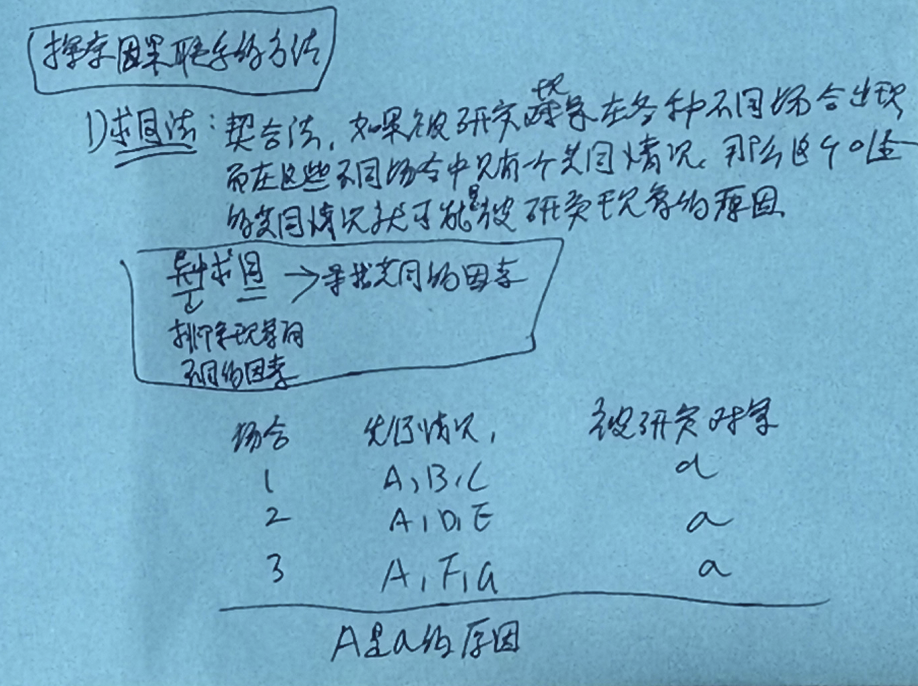 探索因果联系的方法
1)求同法：契合法，如果被研究现象在各种不同场合出现
而在这些不同场合中只有一个共同情况，那么这个唯一
的共同情况就可能是被研究现象的原因
异中求同 → 寻找共同的因素
排除现象间
不同的因素
场合 先行情况， 被研究对象
1 A,B,C a
2 A,D,E a
3 A,F,G a
A是a的原因